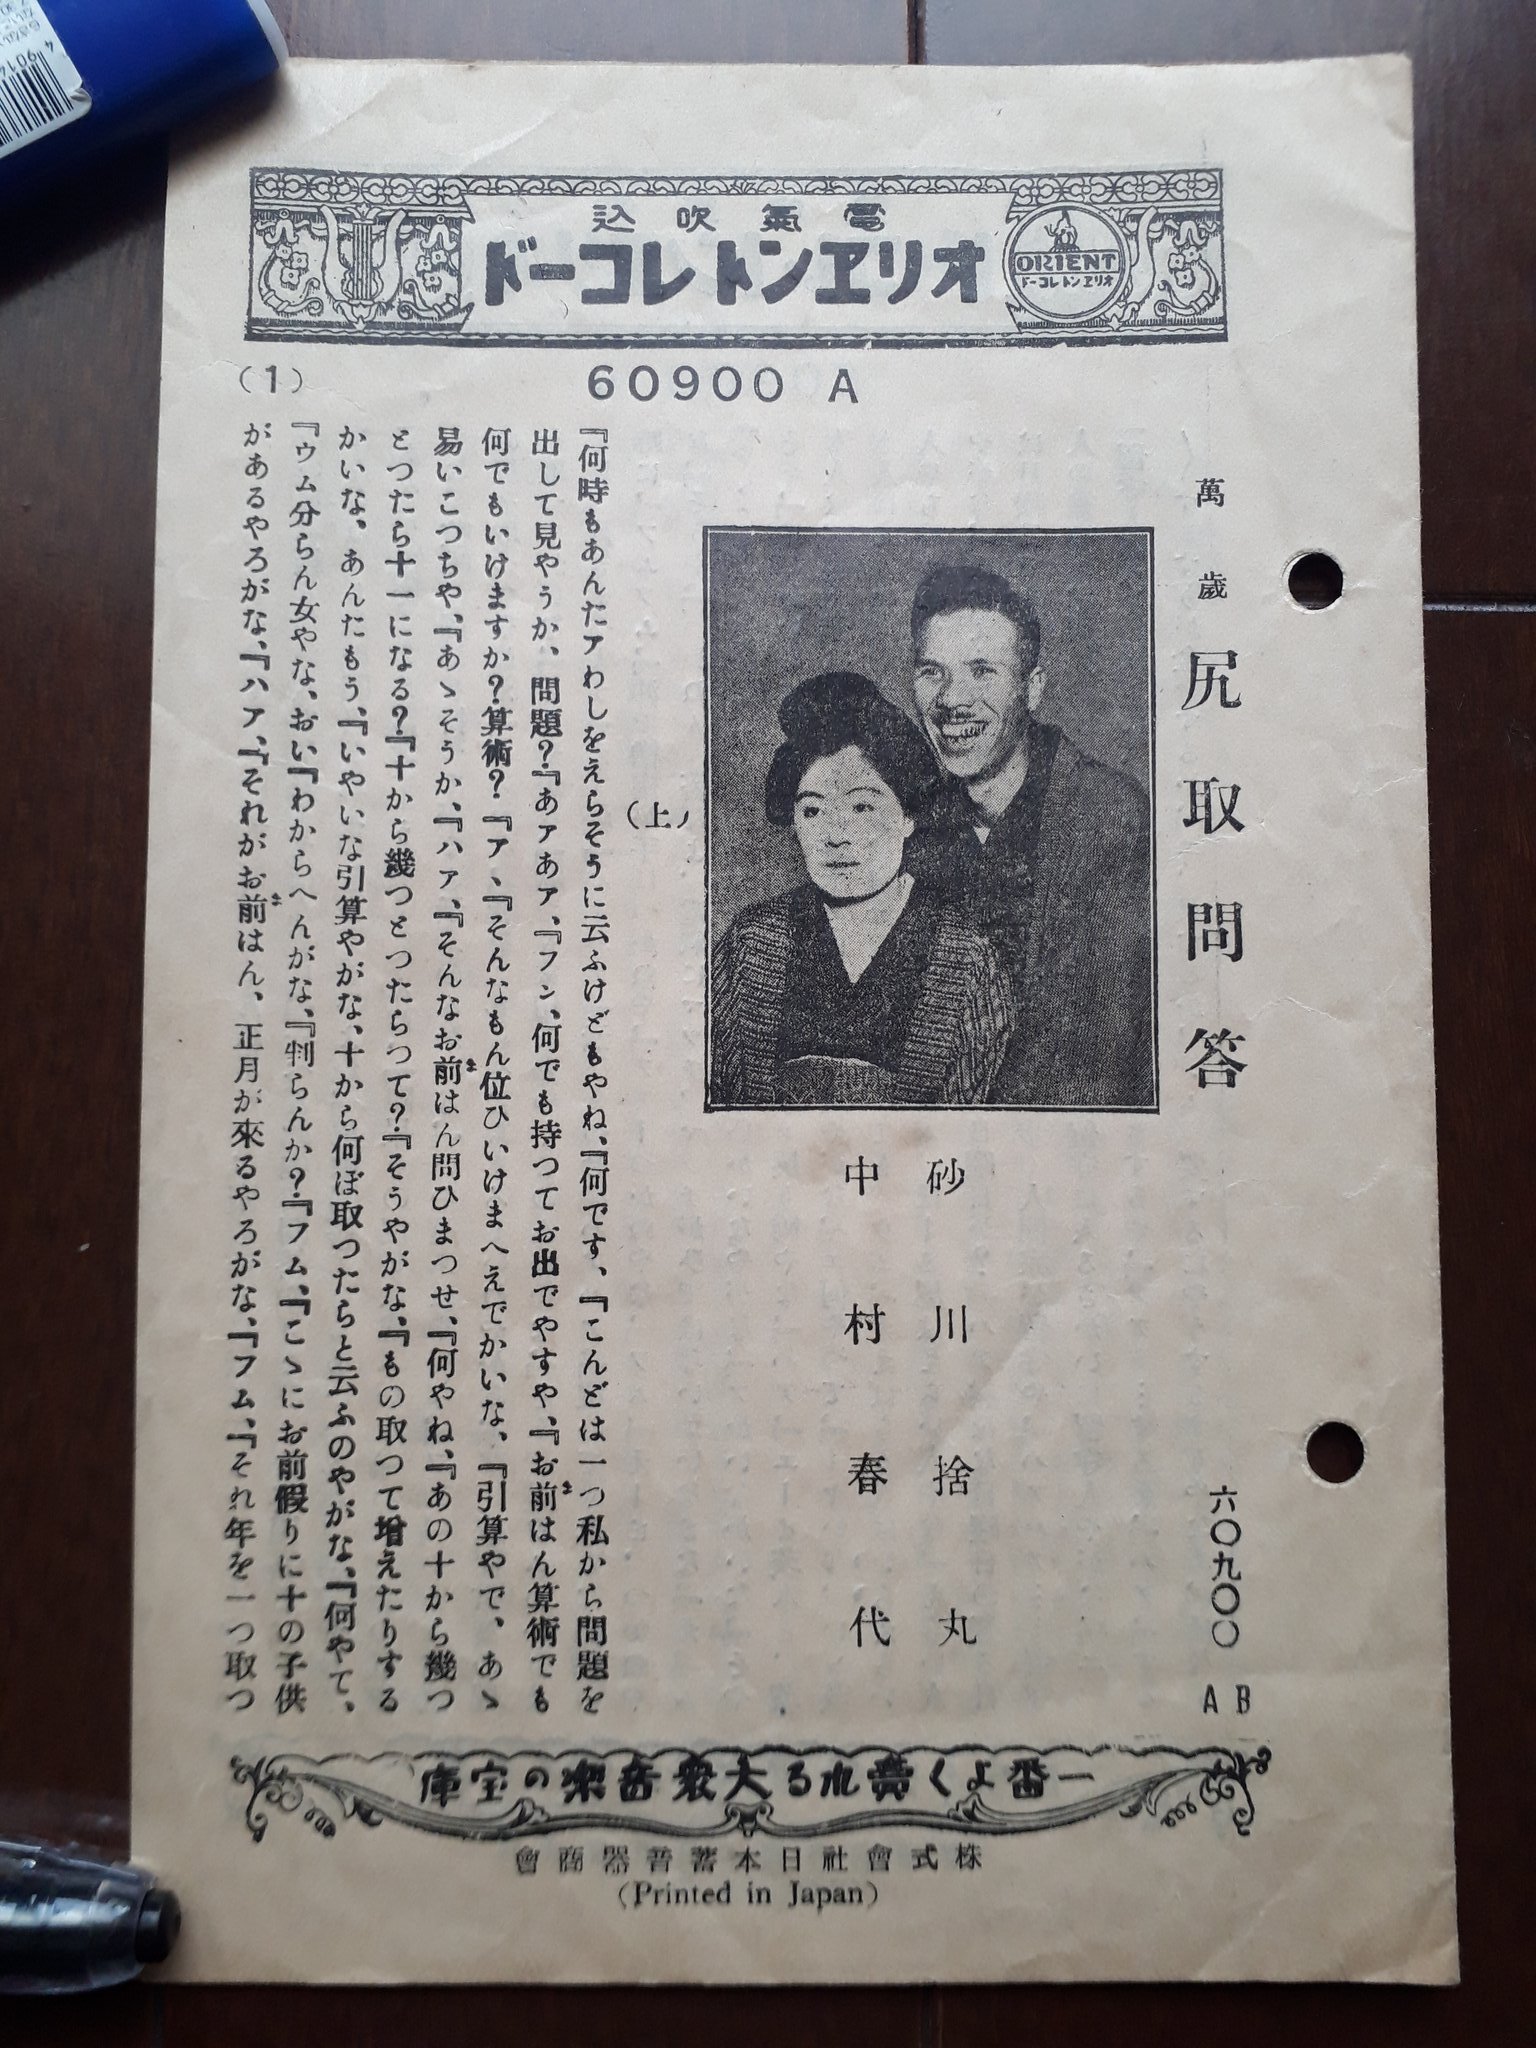 電氣吹込
オリヱントレコード
ORIENT
オリヱントレコード
(1)
60900 A
萬歲 尻取問答
六〇九〇〇 AB
砂川捨丸
中村春代
(上)
『何時もあんたアわしをえらそうに云ふけどもやね、『何です、『こんどは一つ私から問題を
出して見やうか、問題？『あアあア、『フン、何でも持つてお出でやすや、『お前はん算術でも
何でもいけますか？算術？『ア、『そんなもん位ひいけまへえでかいな、『引算やで、あゝ
易いこつちや、『あゝそうか、『ハア、『そんなお前はん問ひまつせ、『何やね、『あの十から幾つ
とつたら十一になる？『十から幾つとつたらつて？『そうやがな、『もの取つて增えたりする
かいな、あんたもう、『いやいな引算やがな、十から何ぼ取つたらと云ふのやがな、『何やて、
『ウム分らん女やな、おい『わからへんがな、『判らんか？『フム、『こゝにお前假りに十の子供
があるやろがな、『ハア、『それがお前はん、正月が來るやろがな、『フム、『それ年を一つ取つ
一番よく賣れる大衆音樂の宝庫
株式會社日本蓄音器商會
(Printed in Japan)